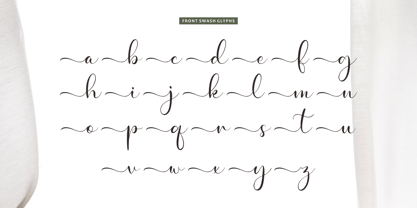 FRONT SWASH GLYPHS
a b c d e f g
h i j k l m n
o p q r s t u
v w x y z